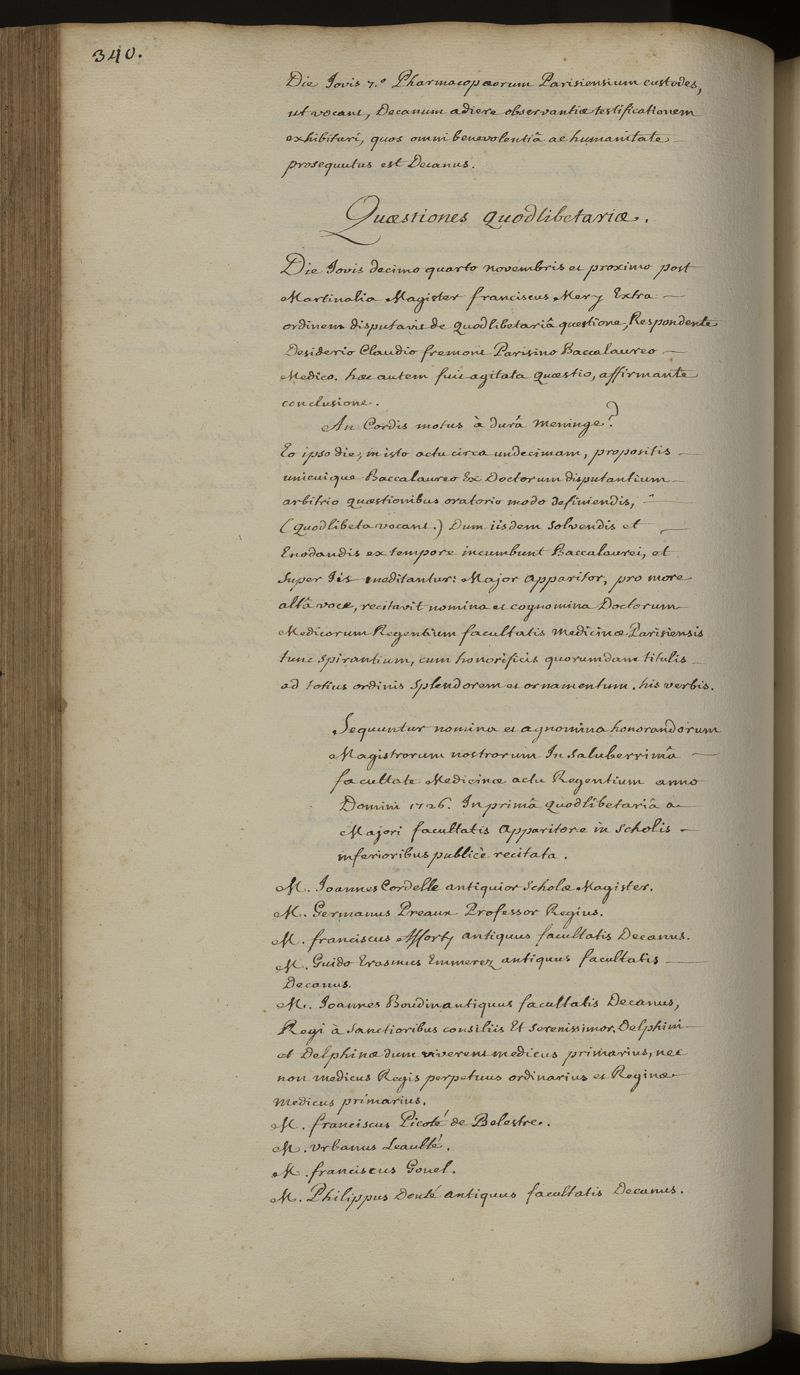 340.
Die Jovis 7.º Pharmacopæorum Parisiensium custodes,
ut vocant, Decanum adiere observantiæ testificationem
exhibituri, quos omni benevolentiâ ac humanitate
prosequutus est Decanus.
Quæstiones quodlibetariæ.
Die Jovis decimo quarto novembris et proximo post
Martinalia Magister franciscus Mery Extra
ordinem disputavit de quodlibetariâ questione, Respondente
Desiderio Claudio fremont Parisino Baccalaureo
Medico. hæc autem fuit agitata quæstio, affirmante
conclusione.
An Cordis motus à durâ meninge?
Eo ipso die, in isto actu circa undecimam, propositis
unicuique Baccalaureo Ex Doctorum disputantium
arbitrio quæstionibus oratorio modo definiendis,
(quodlibeta vocant.) Dum iisdem solvendis et
Enodandis ex tempore incumbunt Baccalaurei, et
super Iis meditantur: Major apparitor, pro more
altâ voce, recitavit nomina et cognomina Doctorum
Medicorum Regentium facultatis medicinæ Parisiensis
tunc spirantium, cum honorificis quorumdam titulis
ad totius ordinis splendorem et ornamentum. his verbis.
Sequuntur nomina et agnomina honorandorum
Magistrorum nostrorum In saluberrimâ
facultate Medicinæ actu Regentium anno
Domini 1726. In primâ quodlibetariâ a
Majori facultatis apparitore in scholis
inferioribus publicè recitata.
M. Joannes Cordelle antiquior scholæ Magister.
M. Germanus Preaux Professor Regius.
M. franciscus Afforty antiquus facultatis Decanus.
M. Guido Erasmus Emmerez antiquus facultatis
Decanus.
M. Joannes Boudin antiquus facultatis Decanus,
Regi à sanctioribus consiliis Et serenissimor. Delphini
et Delphinæ dum viverent medicus primarius, nec
non medicus Regis perpetuus ordinarius et Reginæ
medicus primarius.
M. franciscus Picoté de Belestre.
M. Urbanus Leaulté.
M. franciscus Gouel.
M. Philippus Douté antiquus facultatis Decanus.